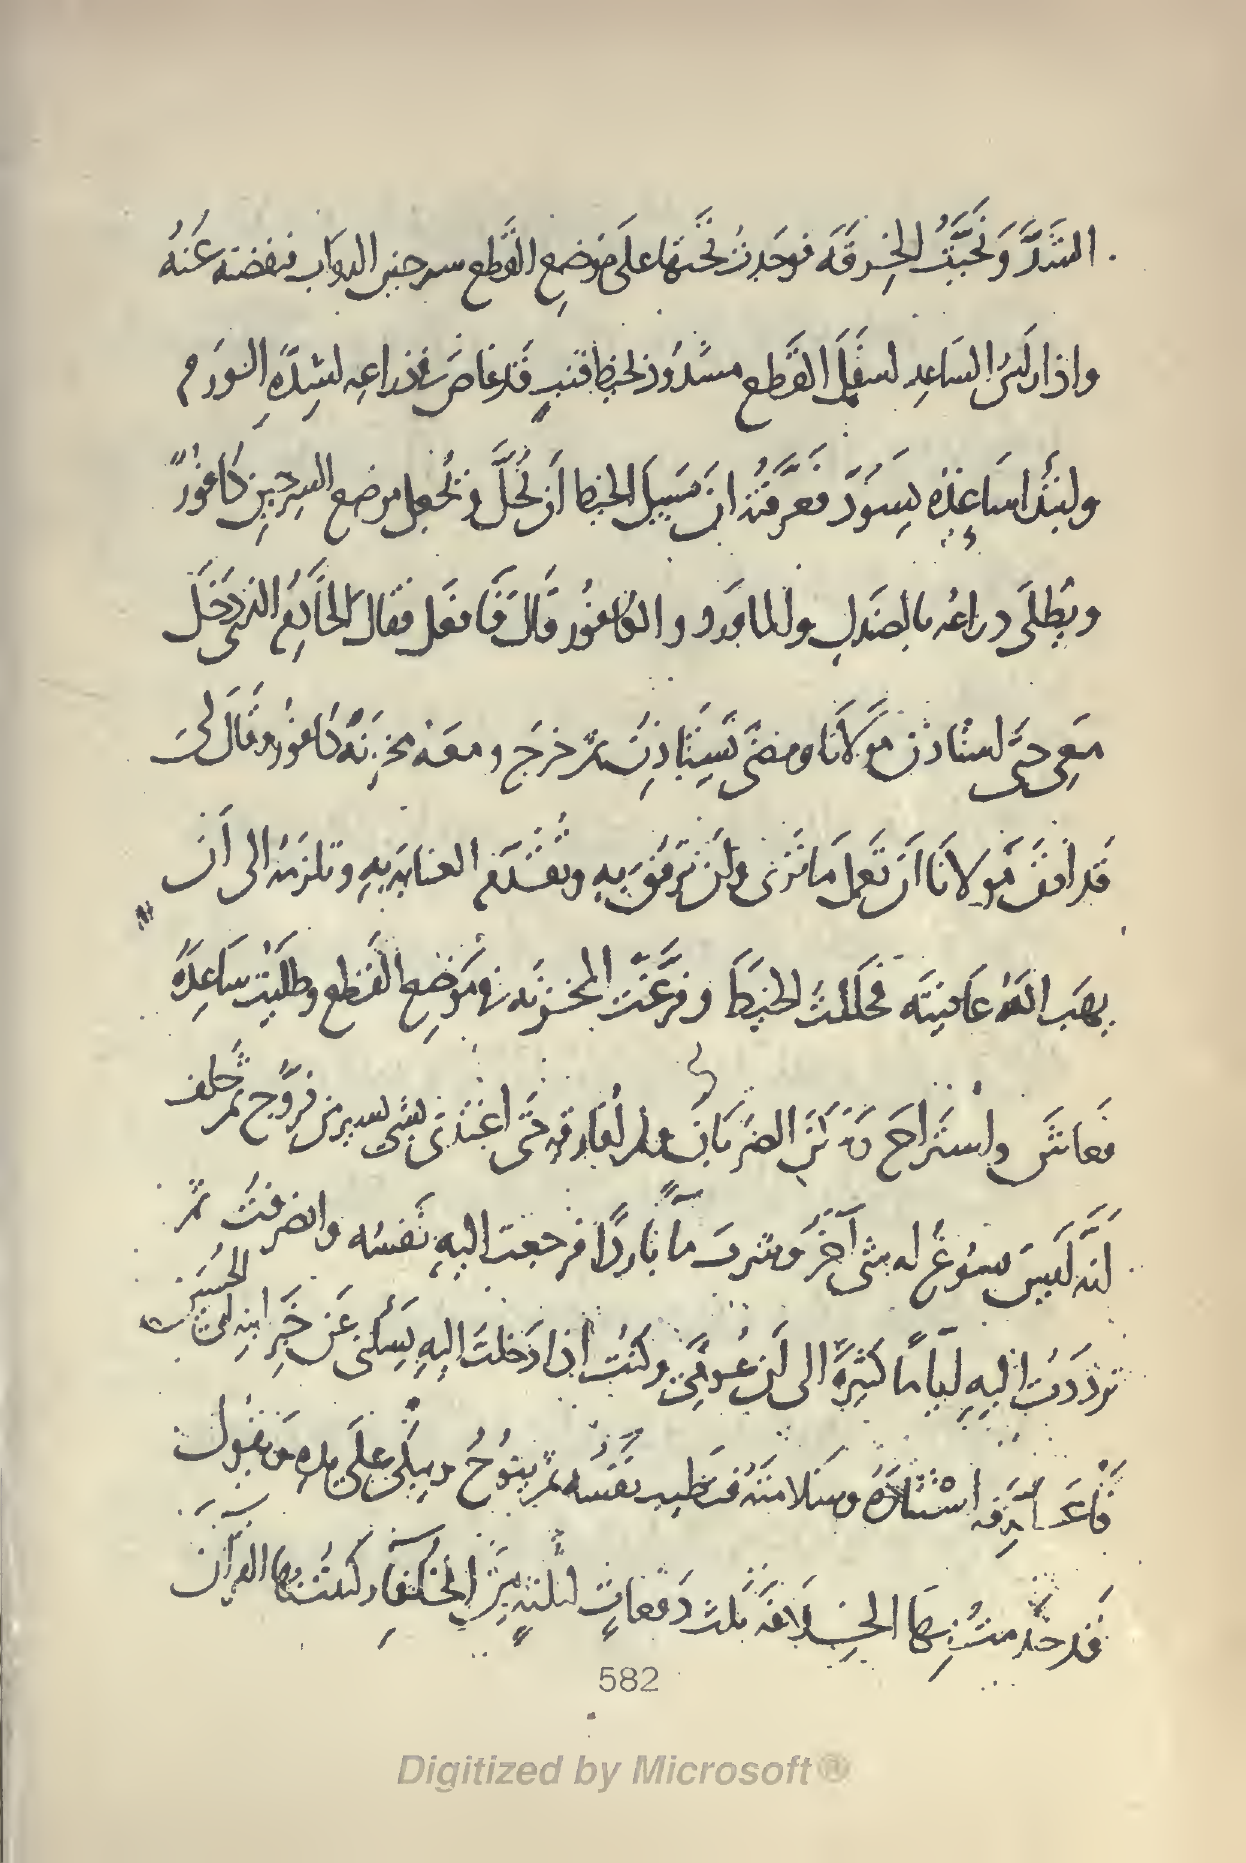 الشدَّ وَنَحَّيتُ الخِرقَه فوجَدتُ تَحْتَها على مَوضِع القَطع سرجين الدوَاب فنفضته عَنهُ
واذا راس السَاعِد اسفَل القَطع مَشدُود بخيط قنبٍ قَد غاصَ في ذراعه لشِدَّةِ الوَرَم
وابتَدأ سَاعِدُه يسوَدّ فعَرَّفتُه ان سَبيلَ الخيط أن يُحَلَّ ويُجعل موضع السرجين كافورًا
ويُطلَى دراعُه بالصَندل والماورد والكافُور قالَ فافعل فقال الخَادِمُ الذى دَخَل
معَى حتَّى استاذن مَولانا ومضَى يَستَاذِن ثم خرَج ومعَه مخزَنَةُ كافور وقَال لي
قَد اذنَ مَولانا أن تَعمل مَا تَرَى وان تَرفق به وتقدّم العنايَة بِه وتلزمَهُ الى أن
يهَب اللهُ عافيتَه فحَلَلتُ الخيطَ وفرَّغتُ المخزنَه في مَوضِع القطع وطَلَيت سَاعِدَهُ
فعاشَ واسترَاحَ وَسَكَنَ الضرَبَان ولم أُفارقه حَتّى اغتذى بشى يسير من فرُّوج ثم حلف
انّه لَيسَ يسُوغُ له شى آخَرُ وشربَ مآءً بَارِدًا فرجعَت اليهِ نَفسُه وانصرفتُ ثم
تردَدتُ اليهِ ايَّامًا كثيرَةً الى أن عُوفيَ وكنتُ اذا دَخلتُ اليهِ يَسألني عَن خَبَرِ ابنِه ابى الحُسَين
فاعَرِّفه استتارَهُ وسَلامتَهُ فتطيب نَفسُه ثم ينُوحُ ويَبكِى على يدِه ويقُول
قَد خَدَمتُ بِهَا الخِلافَة ثلث دَفعاتٍ لثلثةٍ مِنَ الخُلَفآءِ وكتبتُ بها القُرآن
582
Digitized by Microsoft®